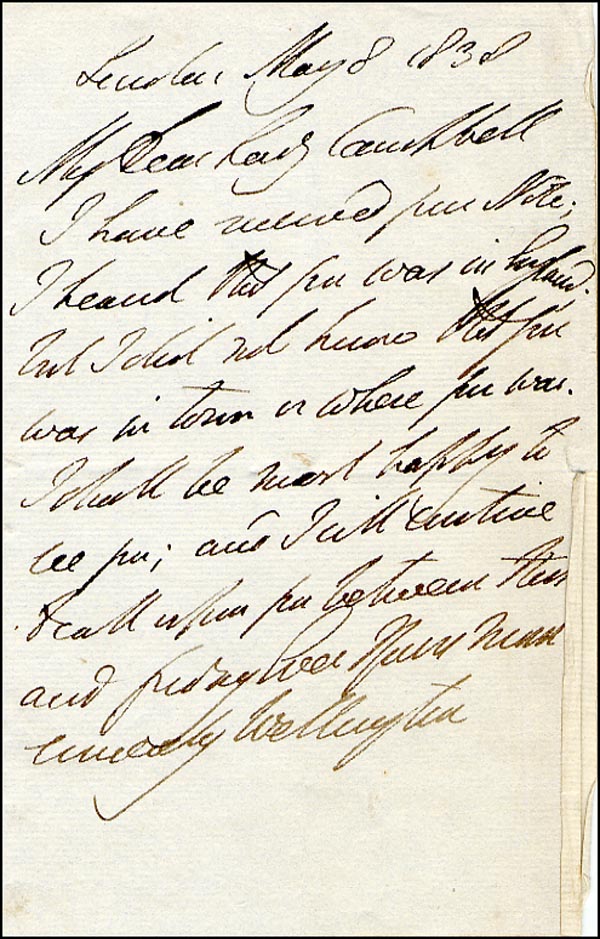 London May 8 1838
My Dear Lady Campbell
I have received your Note;
I heard that you was in England.
but I did not know that you
was in town or where you was.
I shall be most happy to
see you; and I will contrive
to call upon you between this
and Friday next Yours most
sincerely Wellington